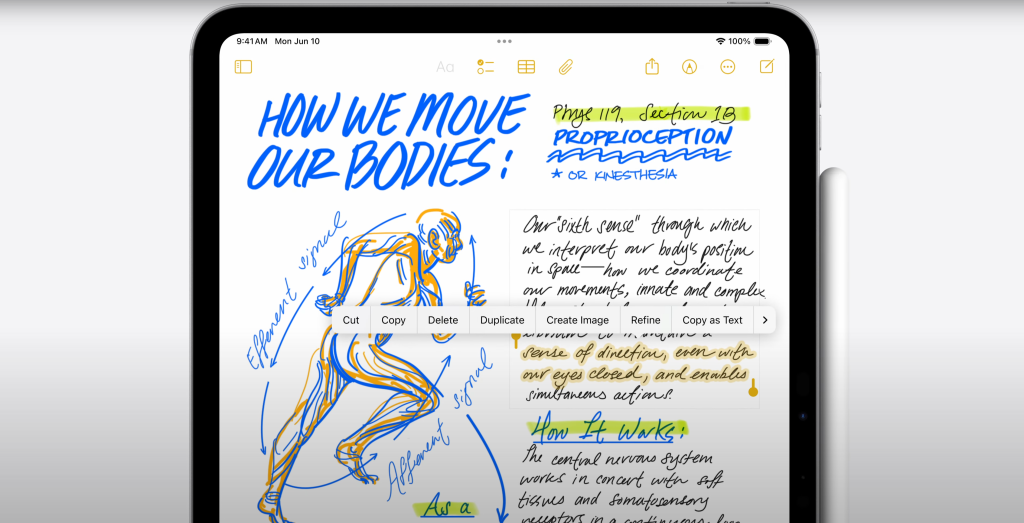 9:41 AM Mon Jun 10
100%
Aa
HOW WE MOVE
OUR BODIES:
Phys 119, Section 1B
PROPRIOCEPTION
* OR KINESTHESIA
Our "sixth sense" through which
we interpret our body's position
in space—how we coordinate
our movements, innate and complex
Cut Copy Delete Duplicate Create Image Refine Copy as Text
sense of direction, even with
our eyes closed, and enables
simultaneous actions.
Efferent signal
Afferent signal
How It Works:
The central nervous system
works in concert with soft
tissues and somatosensory
receptors in a continuous loop
As a